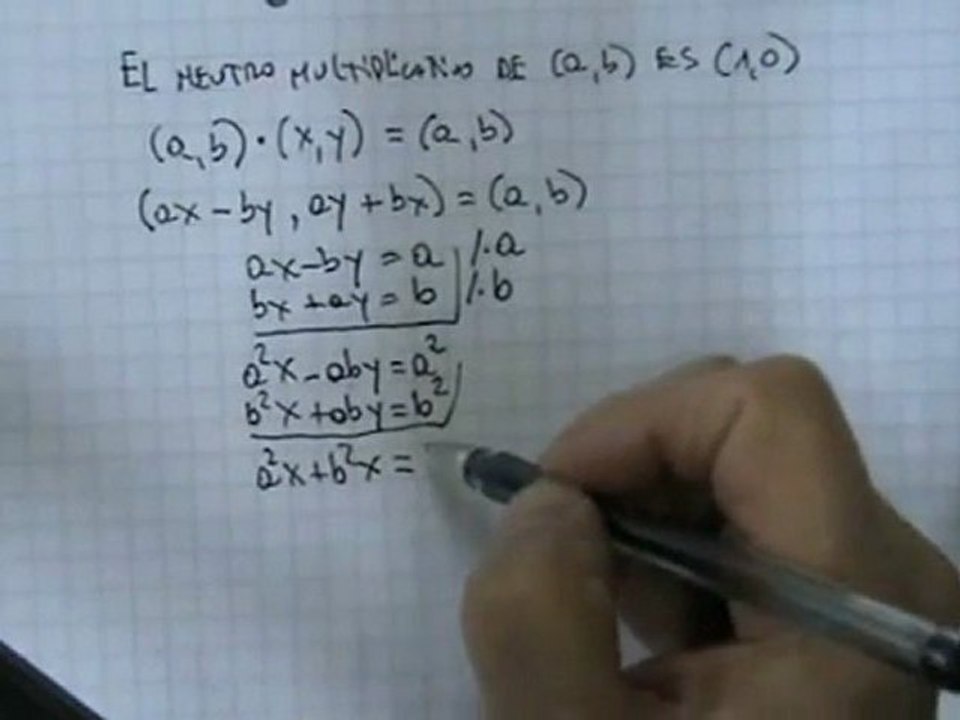 EL NEUTRO MULTIPLICATIVO DE (a,b) ES (1,0)
(a,b)·(x,y) = (a,b)
(ax-by, ay+bx) = (a,b)
ax-by = a /·a
bx+ay = b /·b
a²x-aby=a²
b²x+aby=b²
a²x+b²x=